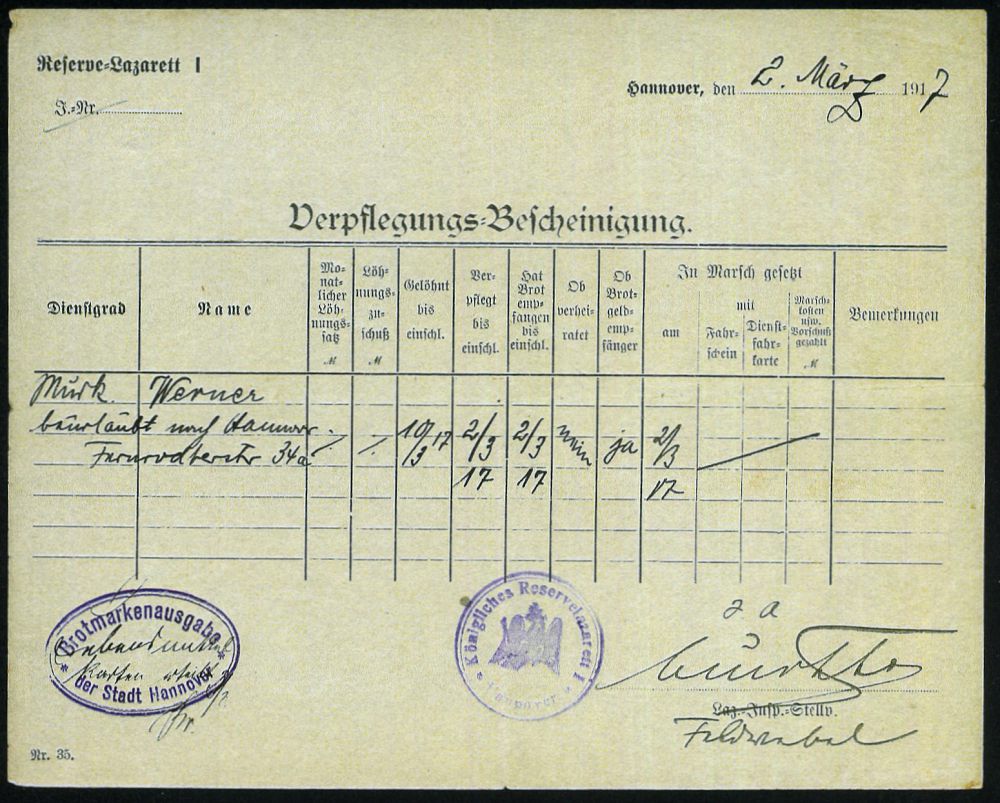 Reserve-Lazarett I
J.-Nr.
Hannover, den 2. März 1917
Verpflegungs-Bescheinigung.
Dienstgrad
Name
Mo-
nat-
licher
Löh-
nungs-
satz
M
Löh-
nungs-
zu-
schuß
M
Gelöhnt
bis
einschl.
Ver-
pflegt
bis
einschl.
Hat
Brot
emp-
fangen
bis
einschl.
Ob
verhei-
ratet
Ob
Brot-
geld-
emp-
fänger
In Marsch gesetzt
am
mit
Fahr-
schein
Dienst-
fahr-
karte
Marsch-
kosten
usw.
Vorschuß
gezahlt
M
Bemerkungen
Musk. Werner
beurlaubt nach Hannover.
34a
10/3 17
2/3 17
2/3 17
nein
ja
2/3 17
Brotmarkenausgabe
der Stadt Hannover
Lebensmittel
Karten
Königliches Reservelazarett I
Hannover
Laz.-Insp.-Stellv.
Feldwebel
Nr. 35.